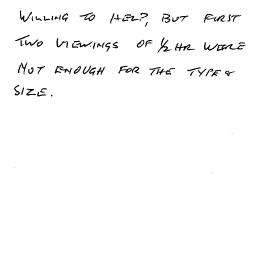 WILLING TO HELP, BUT FIRST
TWO VIEWINGS OF 1/2 HR WERE
NOT ENOUGH FOR THE TYPE &
SIZE.